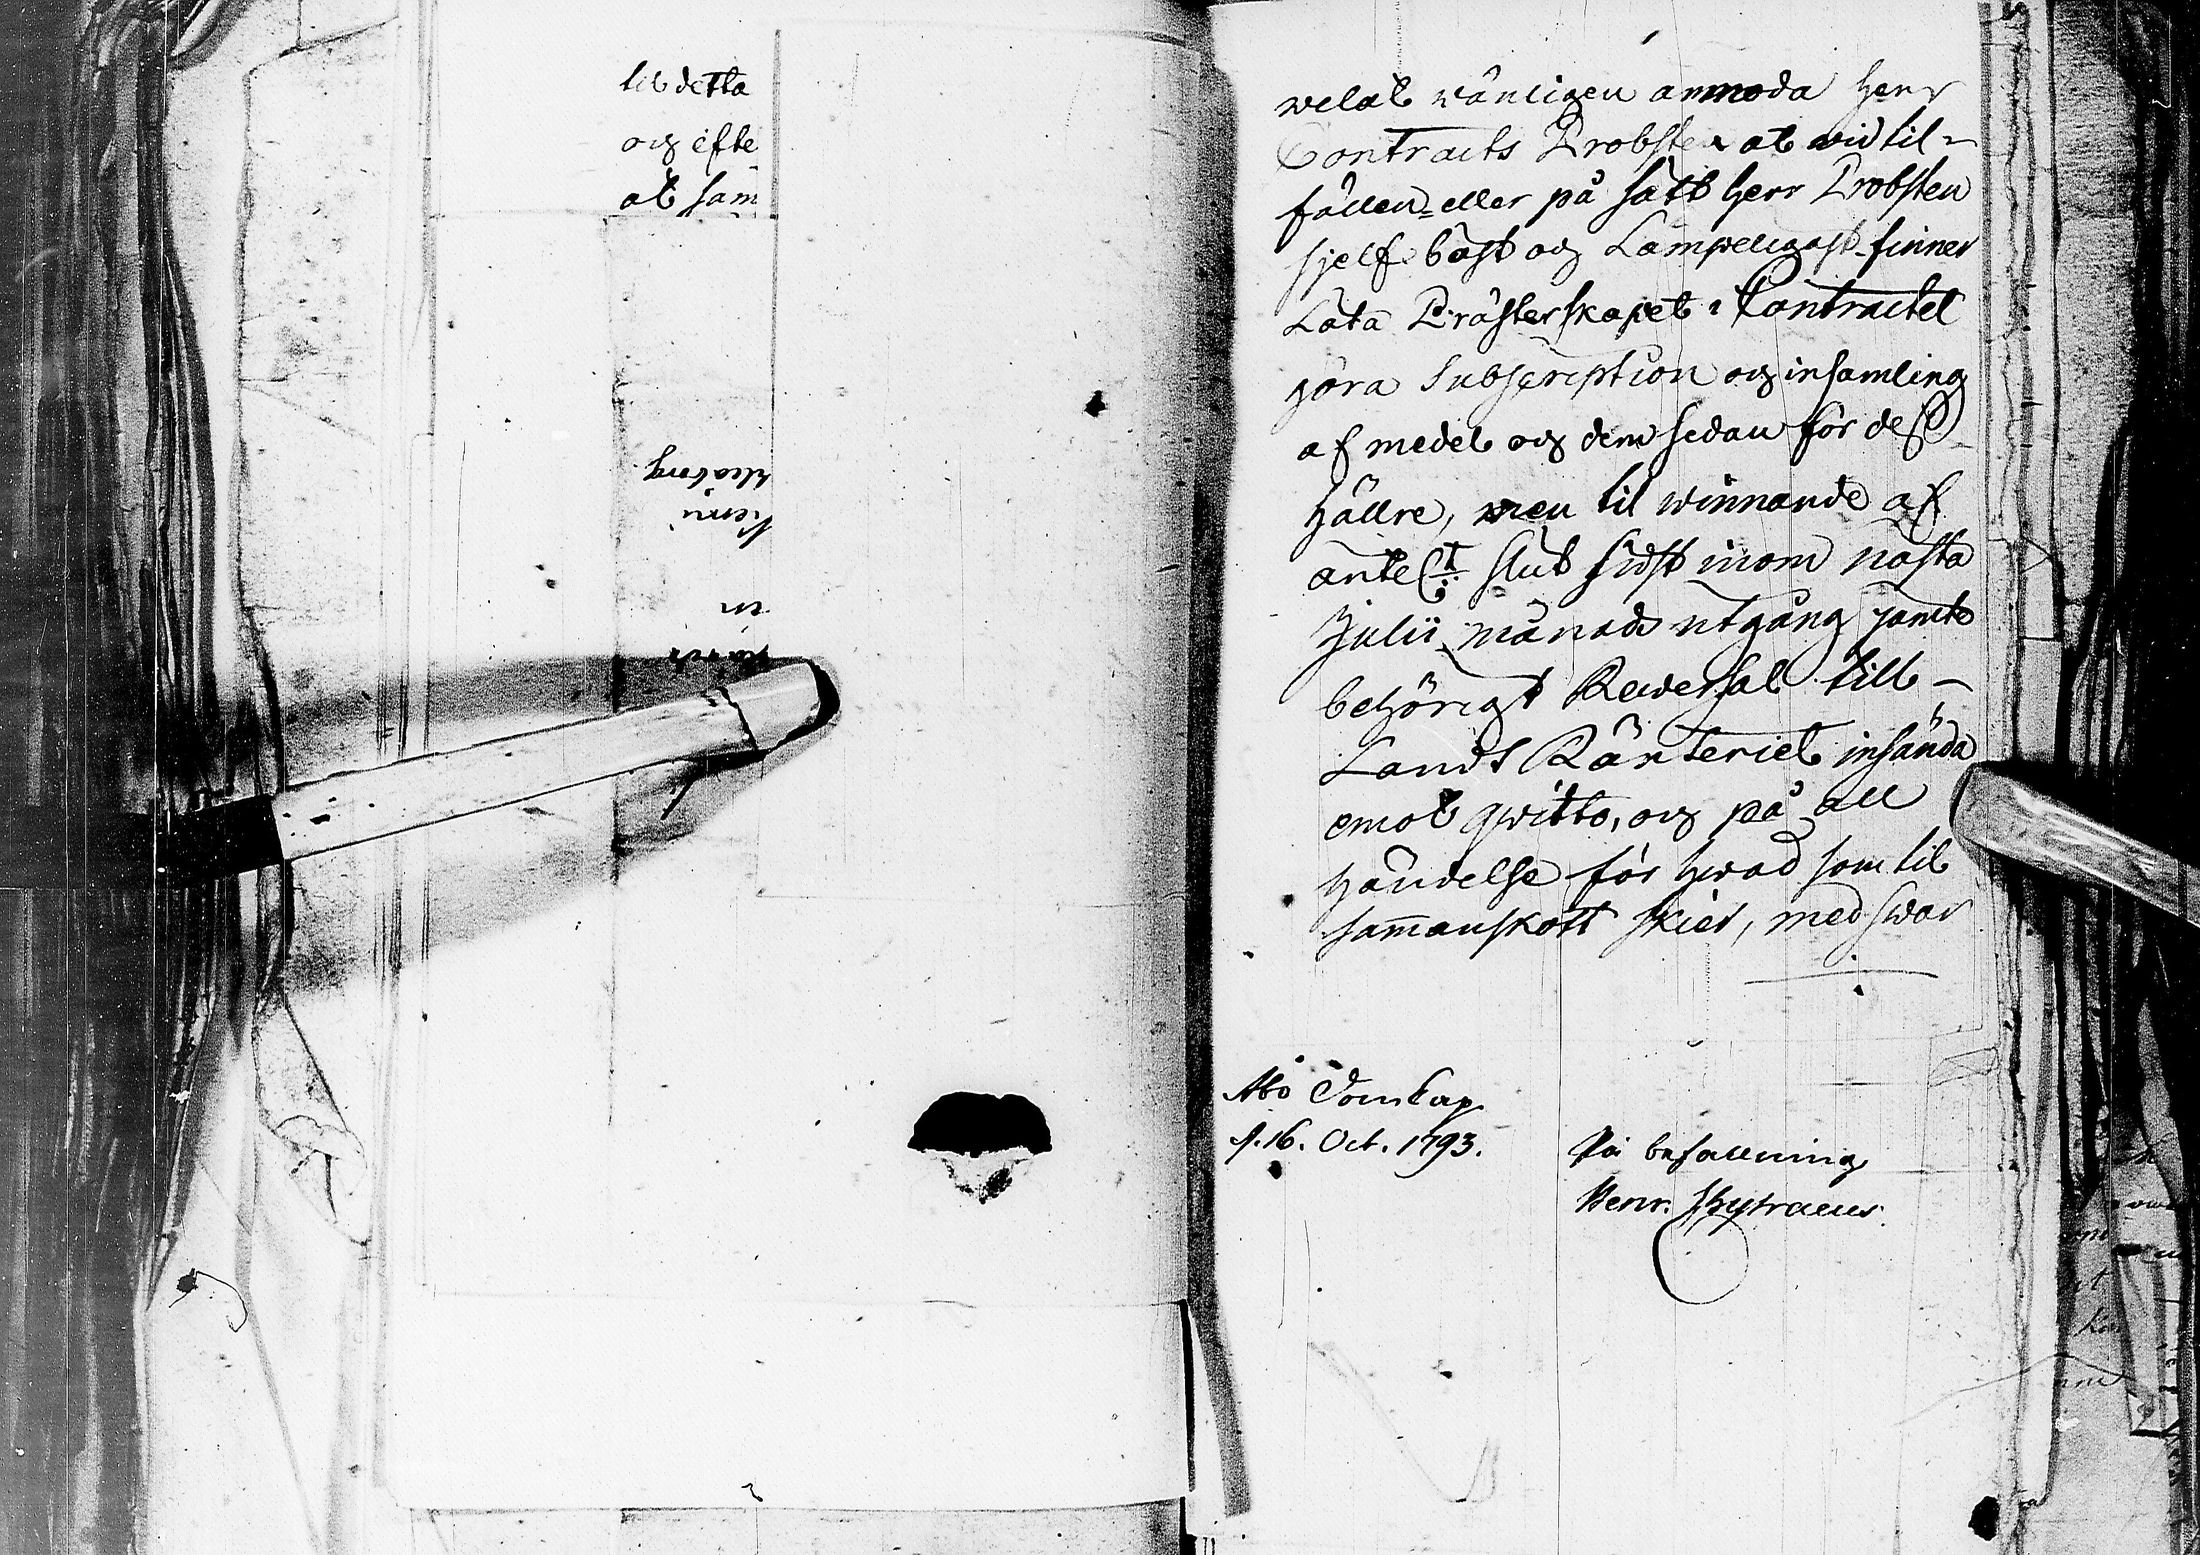 til detta
och efte
at sam
welat wänligen anmoda Herr
Contracts Probsten at wid til-
fällen eller på sätt Herr Probsten
sjelf bäst och Lämpeligast finner
Låta Prästerskapet i Contractet
göra Subscription och insamling
af medel och dem sedan för dess
hällre, men til winnande af
slut sidst inom nästa
Julii månads utgång jämte
behörigt Reversal till
Lands Ränteriet insända
emot qwitto, och på all
händelse för hwad som til
sammanskott skier, med swar
Åbo DomCap.
d. 16. Oct. 1793.
På befallning
Henr. Chytraeus.